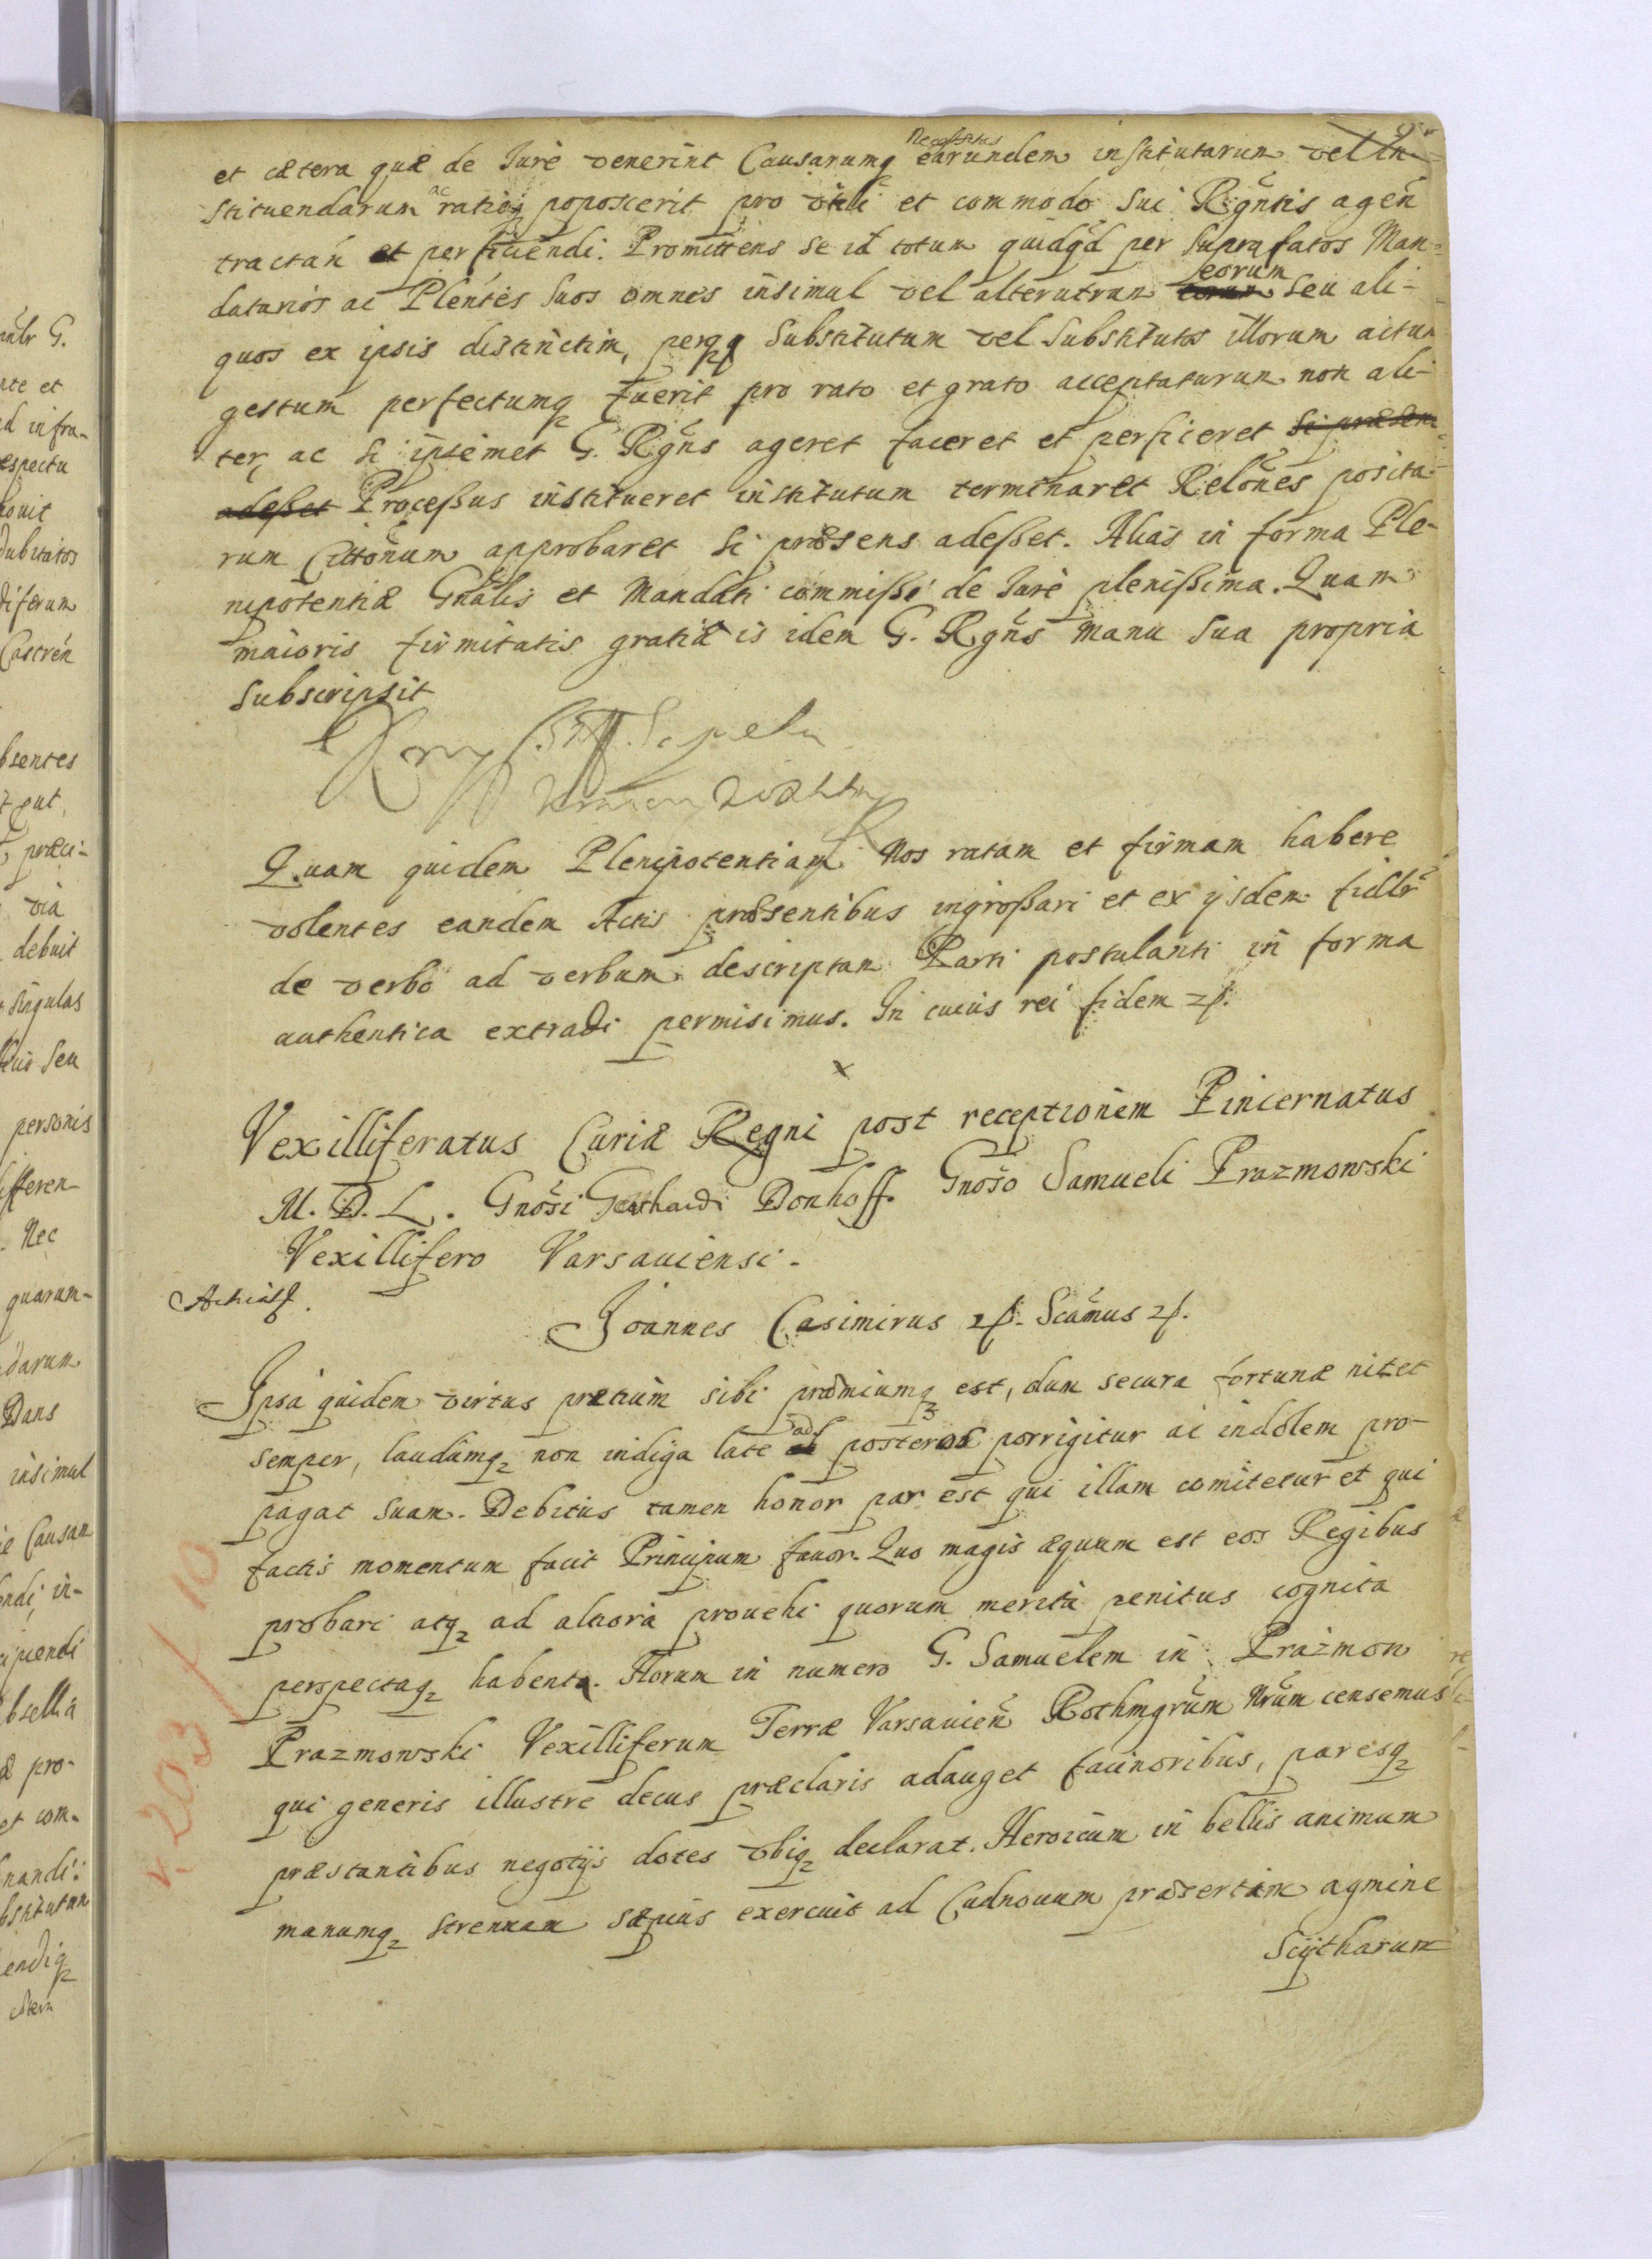 et cætera quæ de Jure venerint Causarumq necessitas earundem institutarum vel in-
stituendarum ac ratio poposcerit pro utili et commodo sui Rgñtis ageñ
tractań et perficiendi. Promittens se id totum quidqd per suprafatos Man=
datarios ac Pleñtes suos omnes insimul vel alterutrum eorum seu ali-
quos ex ipsis distinctim, perqq substitutum vel substitutos illorum actum
gestum perfectumq fuerit pro rato et grato acceptaturum non ali-
ter, ac si ipsemet G. Rgñs ageret faceret et perficeret si præsens
adesset Processus institueret institutum terminaret Relõnes posita-
rum Cittõnum approbaret si præsens adesset. Alias in forma Ple-
nipotentiæ Gnãlis et Mandati commissi de Jure plenissima. Quam
maioris firmitatis gratia is idem G. Rgñs manu sua propria
subscripsit
Sapeha
Quam quidem Plenipotentiam Nos ratam et firmam habere
volentes eandem Actis præsentibus ingrossari et ex ijsdem fidlr
de verbo ad verbum descriptam Parti postulanti in forma
authentica extradi permisimus. In cuius rei fidem
x
Vexilliferatus Curiæ Regni post receptionem Pincernatus
M. D. L. Gnõsi Gerhardi Donhoff. Gnõso Samueli Prazmowski
Vexillifero Varsaviensi.
Joannes Casimirus Scãmus
Ipsa quidem virtus pretium sibi præmiumq est, dum secura fortunæ nitet
semper, laudumq non indiga late ad posteros porrigitur ac indolem pro-
pagat suam. Debitus tamen honor par est qui illam comitetur et qui
factis momentum facit Principum favor. Quo magis æquum est eos Regibus
probari atq ad altiora provehi quorum merita penitus cognita
perspectaq habent. Horum in numero G. Samuelem in Prazmow
Prazmowski Vexilliferum Terræ Varsavień Rothmgrũm Nrũm censemus
qui generis illustre decus præclaris adauget facinoribus, paresq
præstantibus negotijs dotes ubiq declarat. Heroicum in bellis animum
manumq strenuam sæpius exercuit ad Cudnovum præsertim agmine
Scytharum
203/10